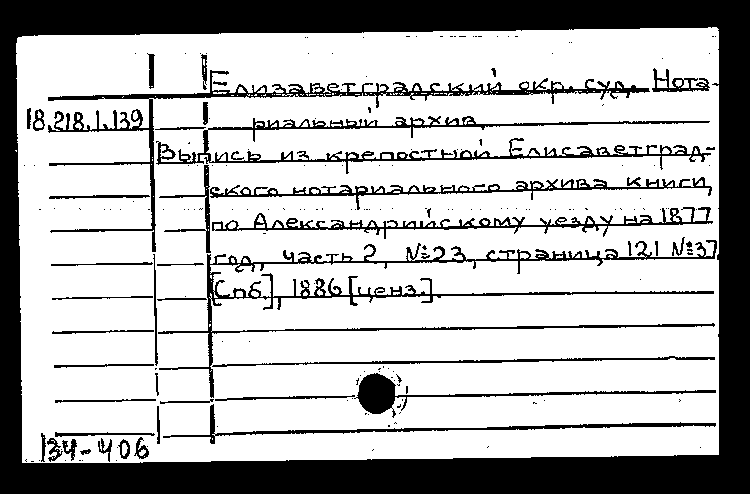 Елизаветградский окр. суд. Нота-
18.218.1.139 риальный архив.
Выпись из крепостной Елисаветград-
ского нотариального архива книги,
по Александрийскому уезду на 1877
год, часть 2, №23, страница 121 №37.
[Спб.], 1886 [ценз.].
134-406